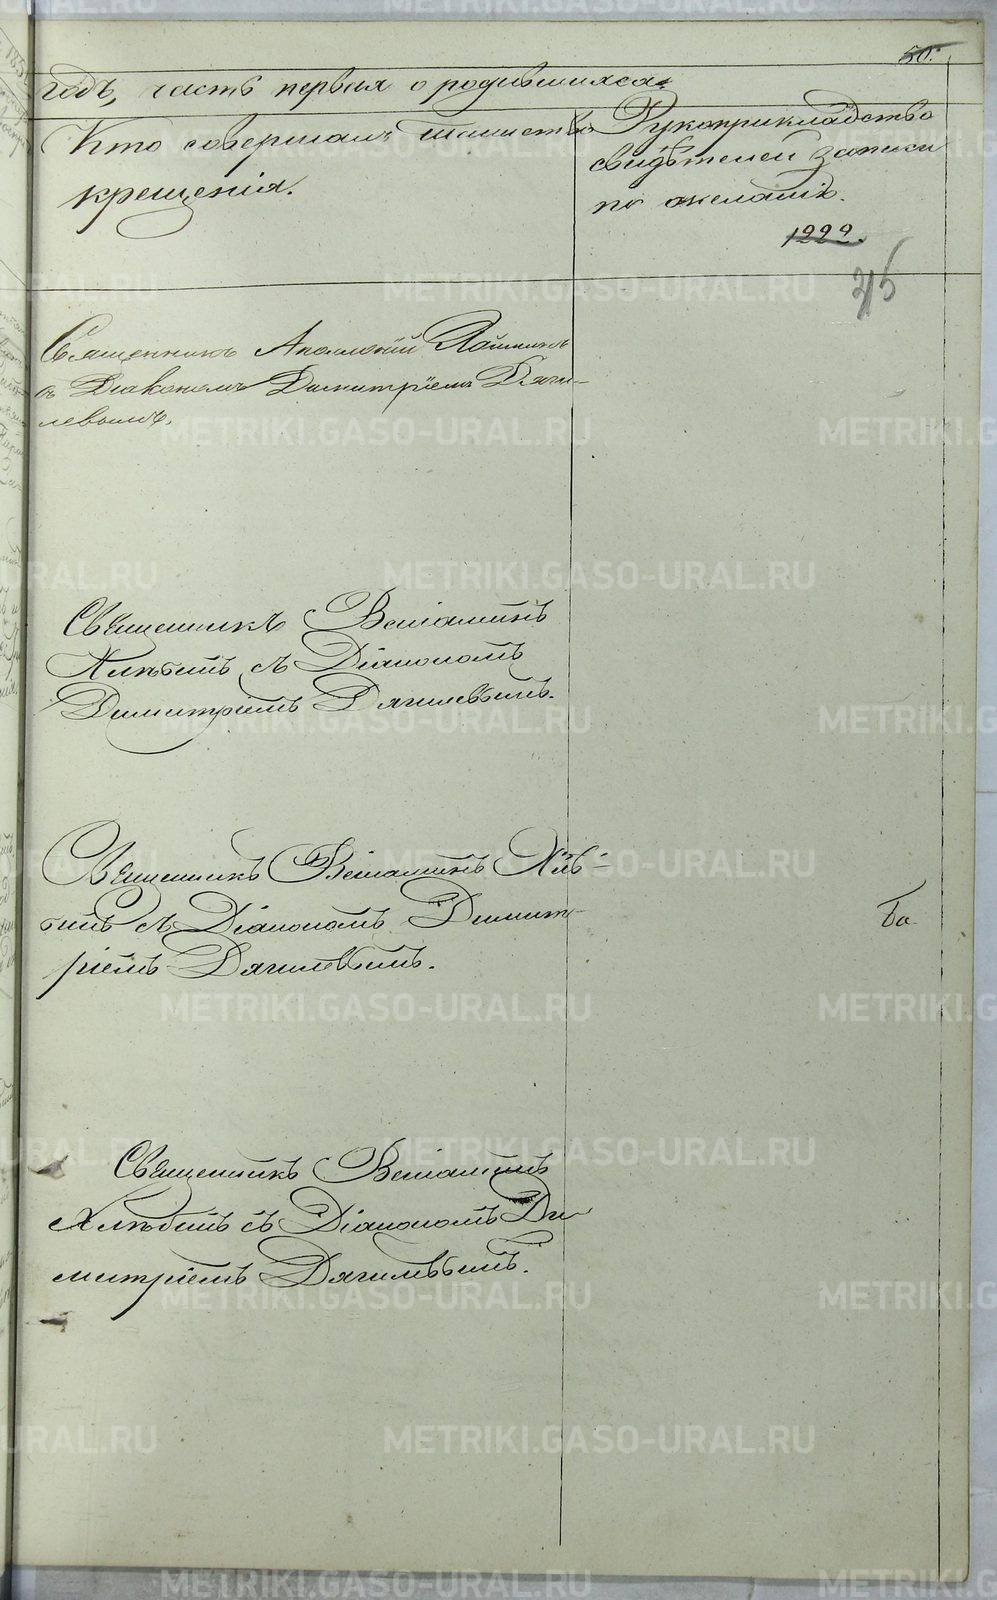 50.
годъ, часть первая о родившихся.
Кто совершалъ таинство
крещенія.
Рукоприкладство
свидѣтелей записи
по желанію.
1222.
215
Священникъ Аполлоній
съ Діакономъ Димитріемъ Дяги-
левымъ.
Священникъ Веніаминъ
Хлѣбинъ съ Діакономъ
Димитріемъ Дягилевымъ.
Священникъ Веніаминъ Хлѣ-
бинъ съ Діакономъ Димит-
ріемъ Дягилевымъ.
Священникъ Веніаминъ
Хлѣбинъ съ Діакономъ Ди
митріемъ Дягилевымъ.
METRIKI.GASO-URAL.RU